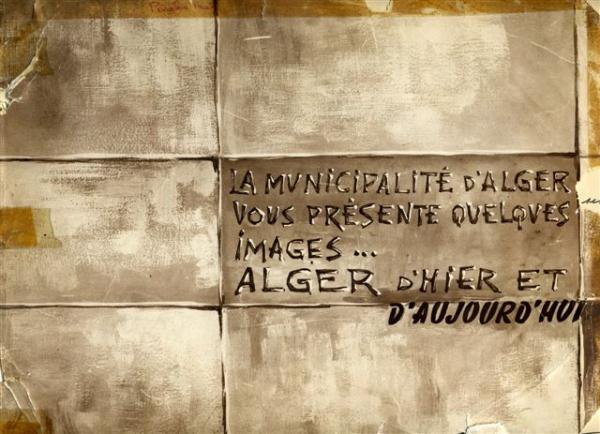 LA MUNICIPALITÉ D'ALGER
VOUS PRÉSENTE QUELQUES
IMAGES...
ALGER D'HIER ET
D'AUJOURD'HUI